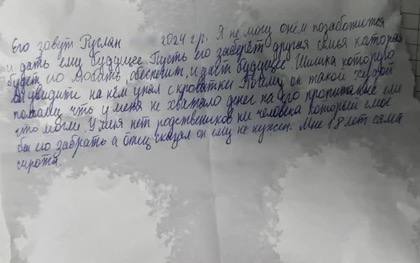 Его зовут Руслан 2024 г.р. Я не могу о нём позаботится
и дать ему будущее Пусть его заберёт другая семья которая
будет его любить, обеспечит, и даст будущее Шишка которую
вы увидите на нём упал с кроватки Почему он такой худой
потому что у меня не хватало денег на его пропитание ели
что могли У меня нет родственников ни человека который смог
бы его забрать а отец сказал он ему не нужен. Мне 18 лет сама
сирота.